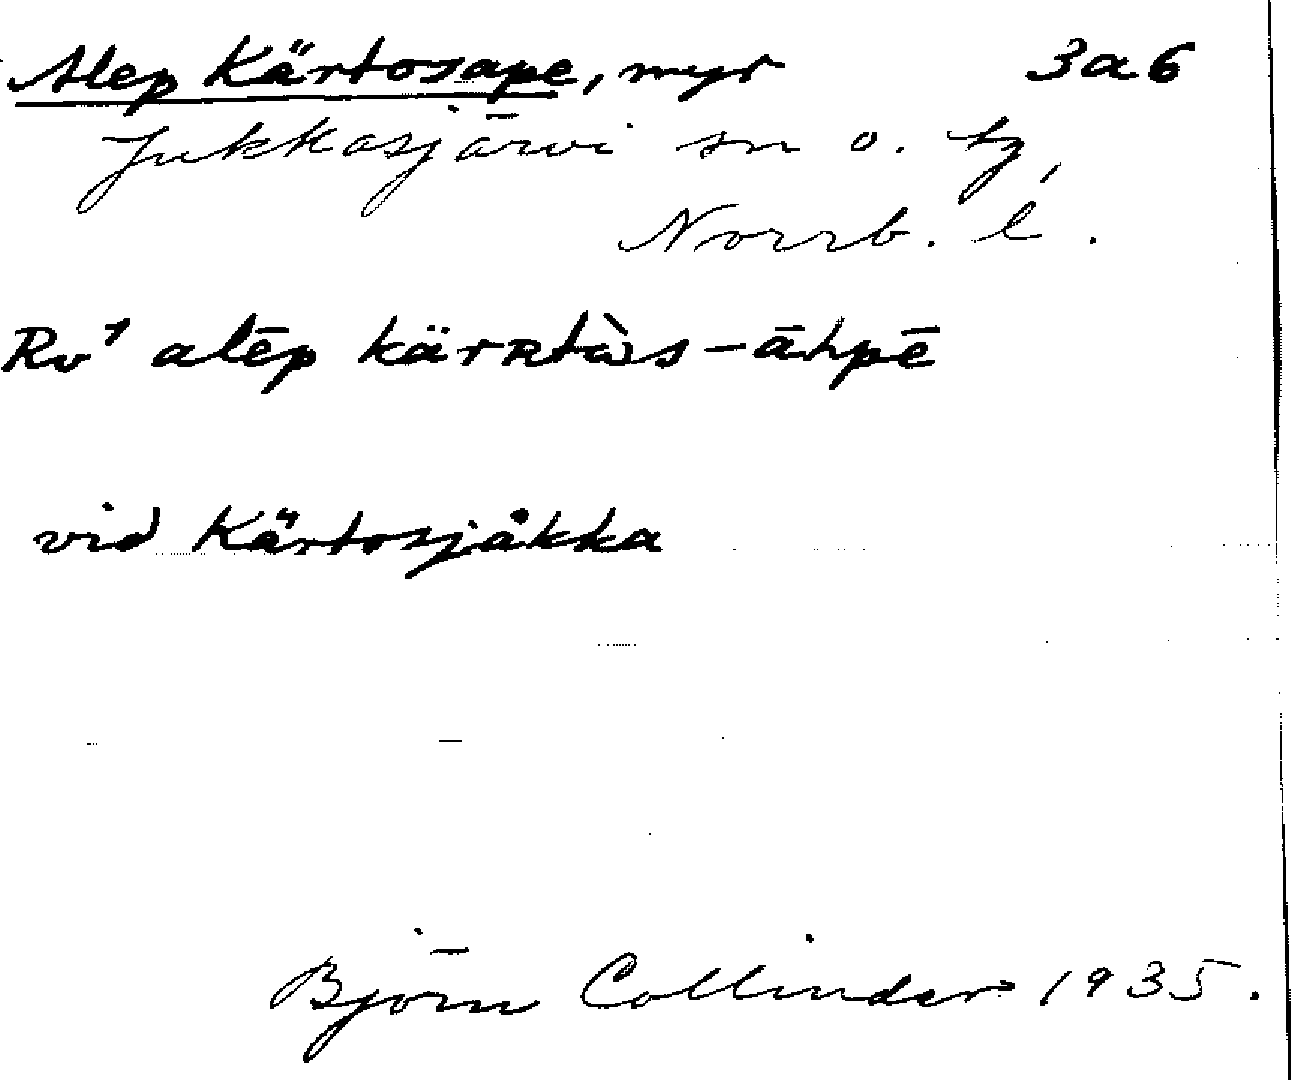 Alep Kärtosape, myr 3a6
Jukkasjärvi sn o. tg,
Norrb. l.
Rv¹ alēp kärʀtὰs-āhpē
vid Kärtosjåkka
Björn Collinder 1935.